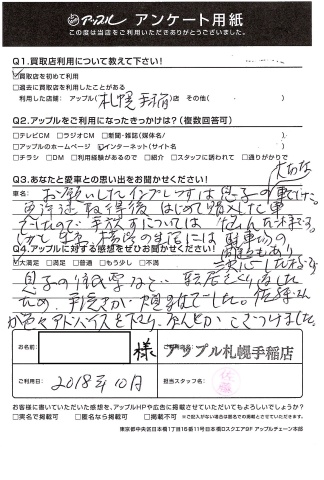 アップル アンケート用紙
この度は当店をご利用いただきありがとうございました。
Q1.買取店利用について教えて下さい!
☑買取店を初めて利用
□過去に買取店を利用したことがある
利用した店舗: アップル(札幌手稲)店 その他( )
Q2.アップルをご利用になったきっかけは?(複数回答可)
□テレビCM □ラジオCM □新聞・雑誌(媒体名/ )
□アップルのホームページ ☑インターネット(サイト名 )
□チラシ □DM □利用経験があるので □紹介 □スタッフに誘われて □通りがかりで
Q3.あなたと愛車との思い出をお聞かせください!
車名:
お願いしたインプレッサは息子の大切な車でした。
免許取得後はじめて購入した車
でしたので、手放すについては
Q4.アップルに対する感想をぜひお聞かせください!
☑大満足 □満足 □普通 □もう少し □不満
息子の
ため、手続きが でした。佐藤さん
が色々アドバイスを下さり、なんとかこぎつけました。
お名前: 様
ご利用店名: アップル札幌手稲店
ご利用日: 2018年10月
担当スタッフ名:
お客様に書いていただいた感想を、アップルHPや広告に掲載させていただいてもよろしいでしょうか?
□実名で掲載可 □匿名なら掲載可 □掲載不可 ※ご記入がない場合は匿名での掲載とさせていただきます。
東京都中央区日本橋1丁目16番11号日本橋Dスクエア9F アップルチェーン本部